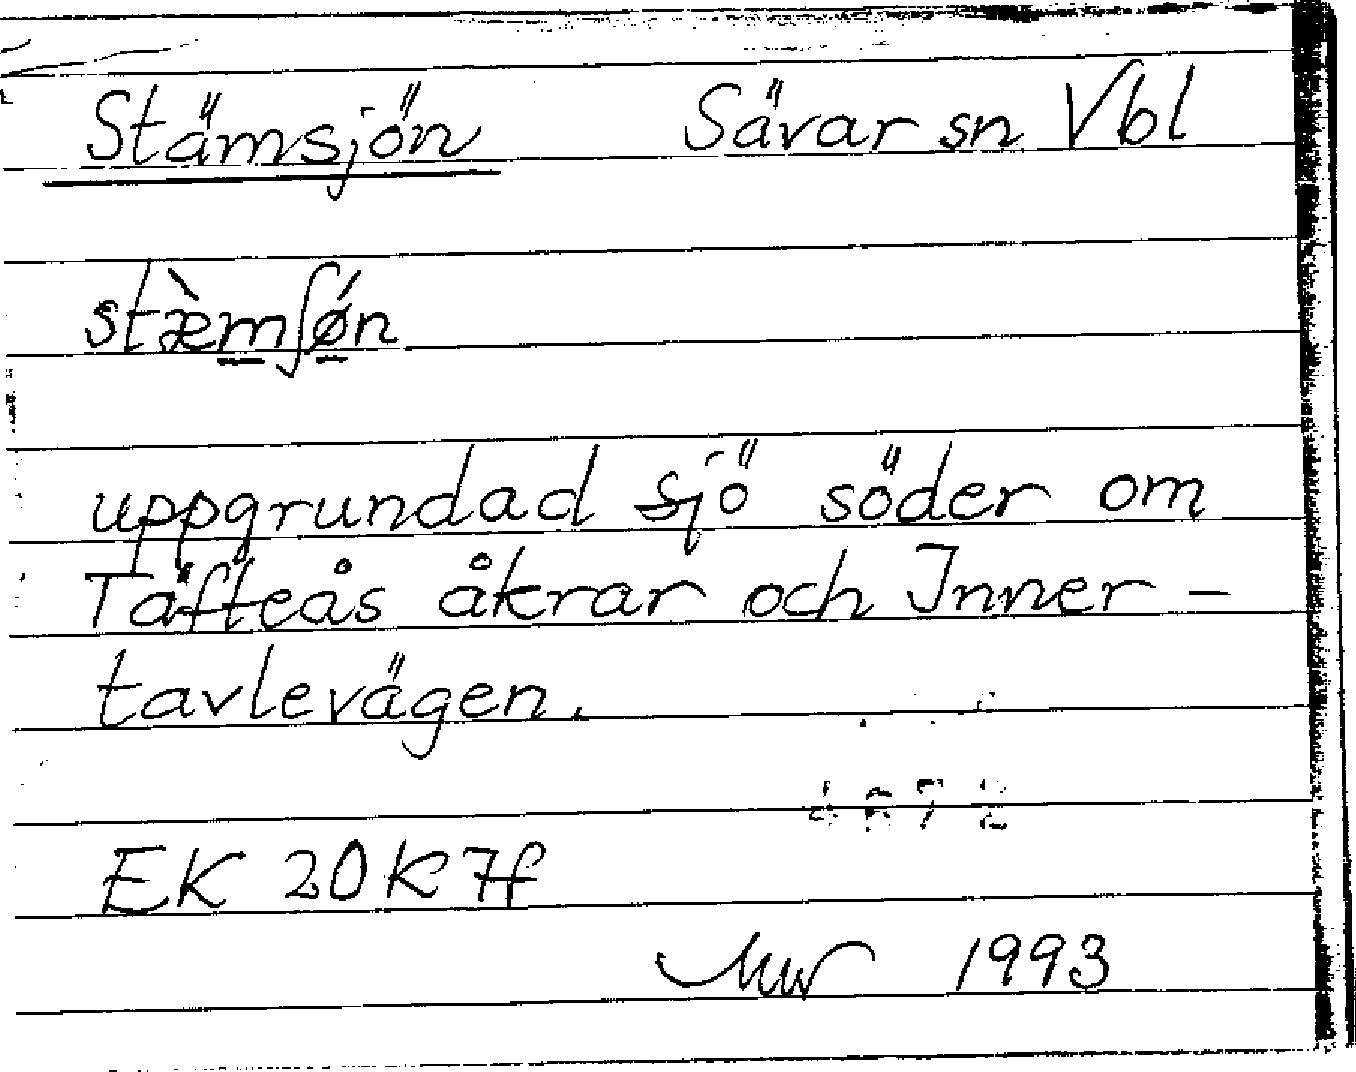 Stämsjön Sävar sn Vbl
stæ̀mʃǿn
uppgrundad sjö söder om
Täfteås åkrar och Inner-
tavlevägen.
EK 20K7f
1993